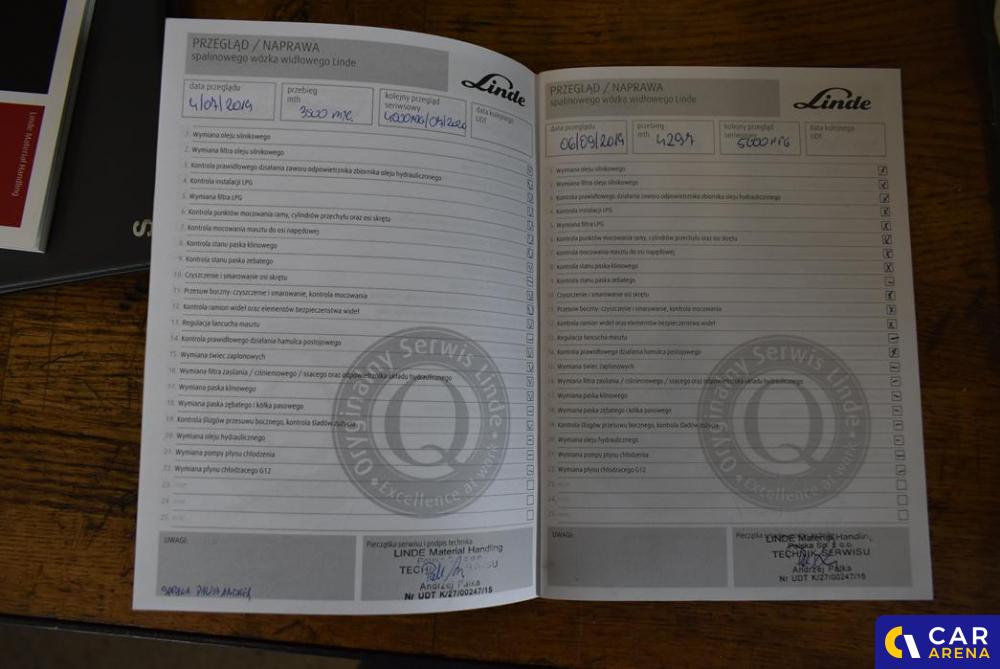 Linde Material Handling
S
PRZEGLĄD / NAPRAWA
spalinowego wózka widłowego Linde
Linde
data przeglądu
przebieg
mth
kolejny przegląd
seriwsowy
data kolejnego
UDT
3500 mtg.
1. Wymiana oleju silnikowego
2. Wymiana filtra oleju silnikowego
3. Kontrola prawidłowego działania zaworu odpowietrznika zbiornika oleju hydraulicznego
4. Kontrola instalacji LPG
5. Wymiana filtra LPG
6. Kontrola punktów mocowania ramy, cylindrów przechyłu oraz osi skrętu
7. Kontrola mocowania masztu do osi napędowej
8. Kontrola stanu paska klinowego
9. Kontrola stanu paska zębatego
10. Czyszczenie i smarowanie osi skrętu
11. Przesuw boczny: czyszczenie i smarowanie, kontrola mocowania
12. Kontrola ramion wideł oraz elementów bezpieczeństwa wideł
13. Regulacja łańcucha masztu
14. Kontrola prawidłowego działania hamulca postojowego
15. Wymiana świec zapłonowych
16. Wymiana filtra zasilania / ciśnieniowego / ssącego oraz odpowietrznika układu hydraulicznego
17. Wymiana paska klinowego
18. Wymiana paska zębatego i kółka pasowego
19. Kontrola ślizgów przesuwu bocznego, kontrola śladów zużycia
20. Wymiana oleju hydraulicznego
21. Wymiana pompy płynu chłodzenia
22. Wymiana płynu chłodzącego G12
23. inne:
24. inne:
25. inne:
Oryginalny Serwis Linde
Q
Excellence at work
UWAGI:
Pieczątka serwisu i podpis technika
LINDE Material Handling
TECHNIK SERWISU
Andrzej Pałka
Nr UDT K/27/00247/15
PRZEGLĄD / NAPRAWA
spalinowego wózka widłowego Linde
Linde
data przeglądu
przebieg
mth
kolejny przegląd
seriwsowy
data kolejnego
UDT
06/09/2019
4297
5000 mtg
1. Wymiana oleju silnikowego
2. Wymiana filtra oleju silnikowego
3. Kontrola prawidłowego działania zaworu odpowietrznika zbiornika oleju hydraulicznego
4. Kontrola instalacji LPG
5. Wymiana filtra LPG
6. Kontrola punktów mocowania ramy, cylindrów przechyłu oraz osi skrętu
7. Kontrola mocowania masztu do osi napędowej
8. Kontrola stanu paska klinowego
9. Kontrola stanu paska zębatego
10. Czyszczenie i smarowanie osi skrętu
11. Przesuw boczny: czyszczenie i smarowanie, kontrola mocowania
12. Kontrola ramion wideł oraz elementów bezpieczeństwa wideł
13. Regulacja łańcucha masztu
14. Kontrola prawidłowego działania hamulca postojowego
15. Wymiana świec zapłonowych
16. Wymiana filtra zasilania / ciśnieniowego / ssącego oraz odpowietrznika układu hydraulicznego
17. Wymiana paska klinowego
18. Wymiana paska zębatego i kółka pasowego
19. Kontrola ślizgów przesuwu bocznego, kontrola śladów zużycia
20. Wymiana oleju hydraulicznego
21. Wymiana pompy płynu chłodzenia
22. Wymiana płynu chłodzącego G12
23. inne:
24. inne:
25. inne:
Oryginalny Serwis Linde
Q
Excellence at work
UWAGI:
LINDE Material Handling
Polska Sp. z o.o.
TECHNIK SERWISU
Andrzej Pałka
Nr UDT K/27/00247/15
CAR
ARENA